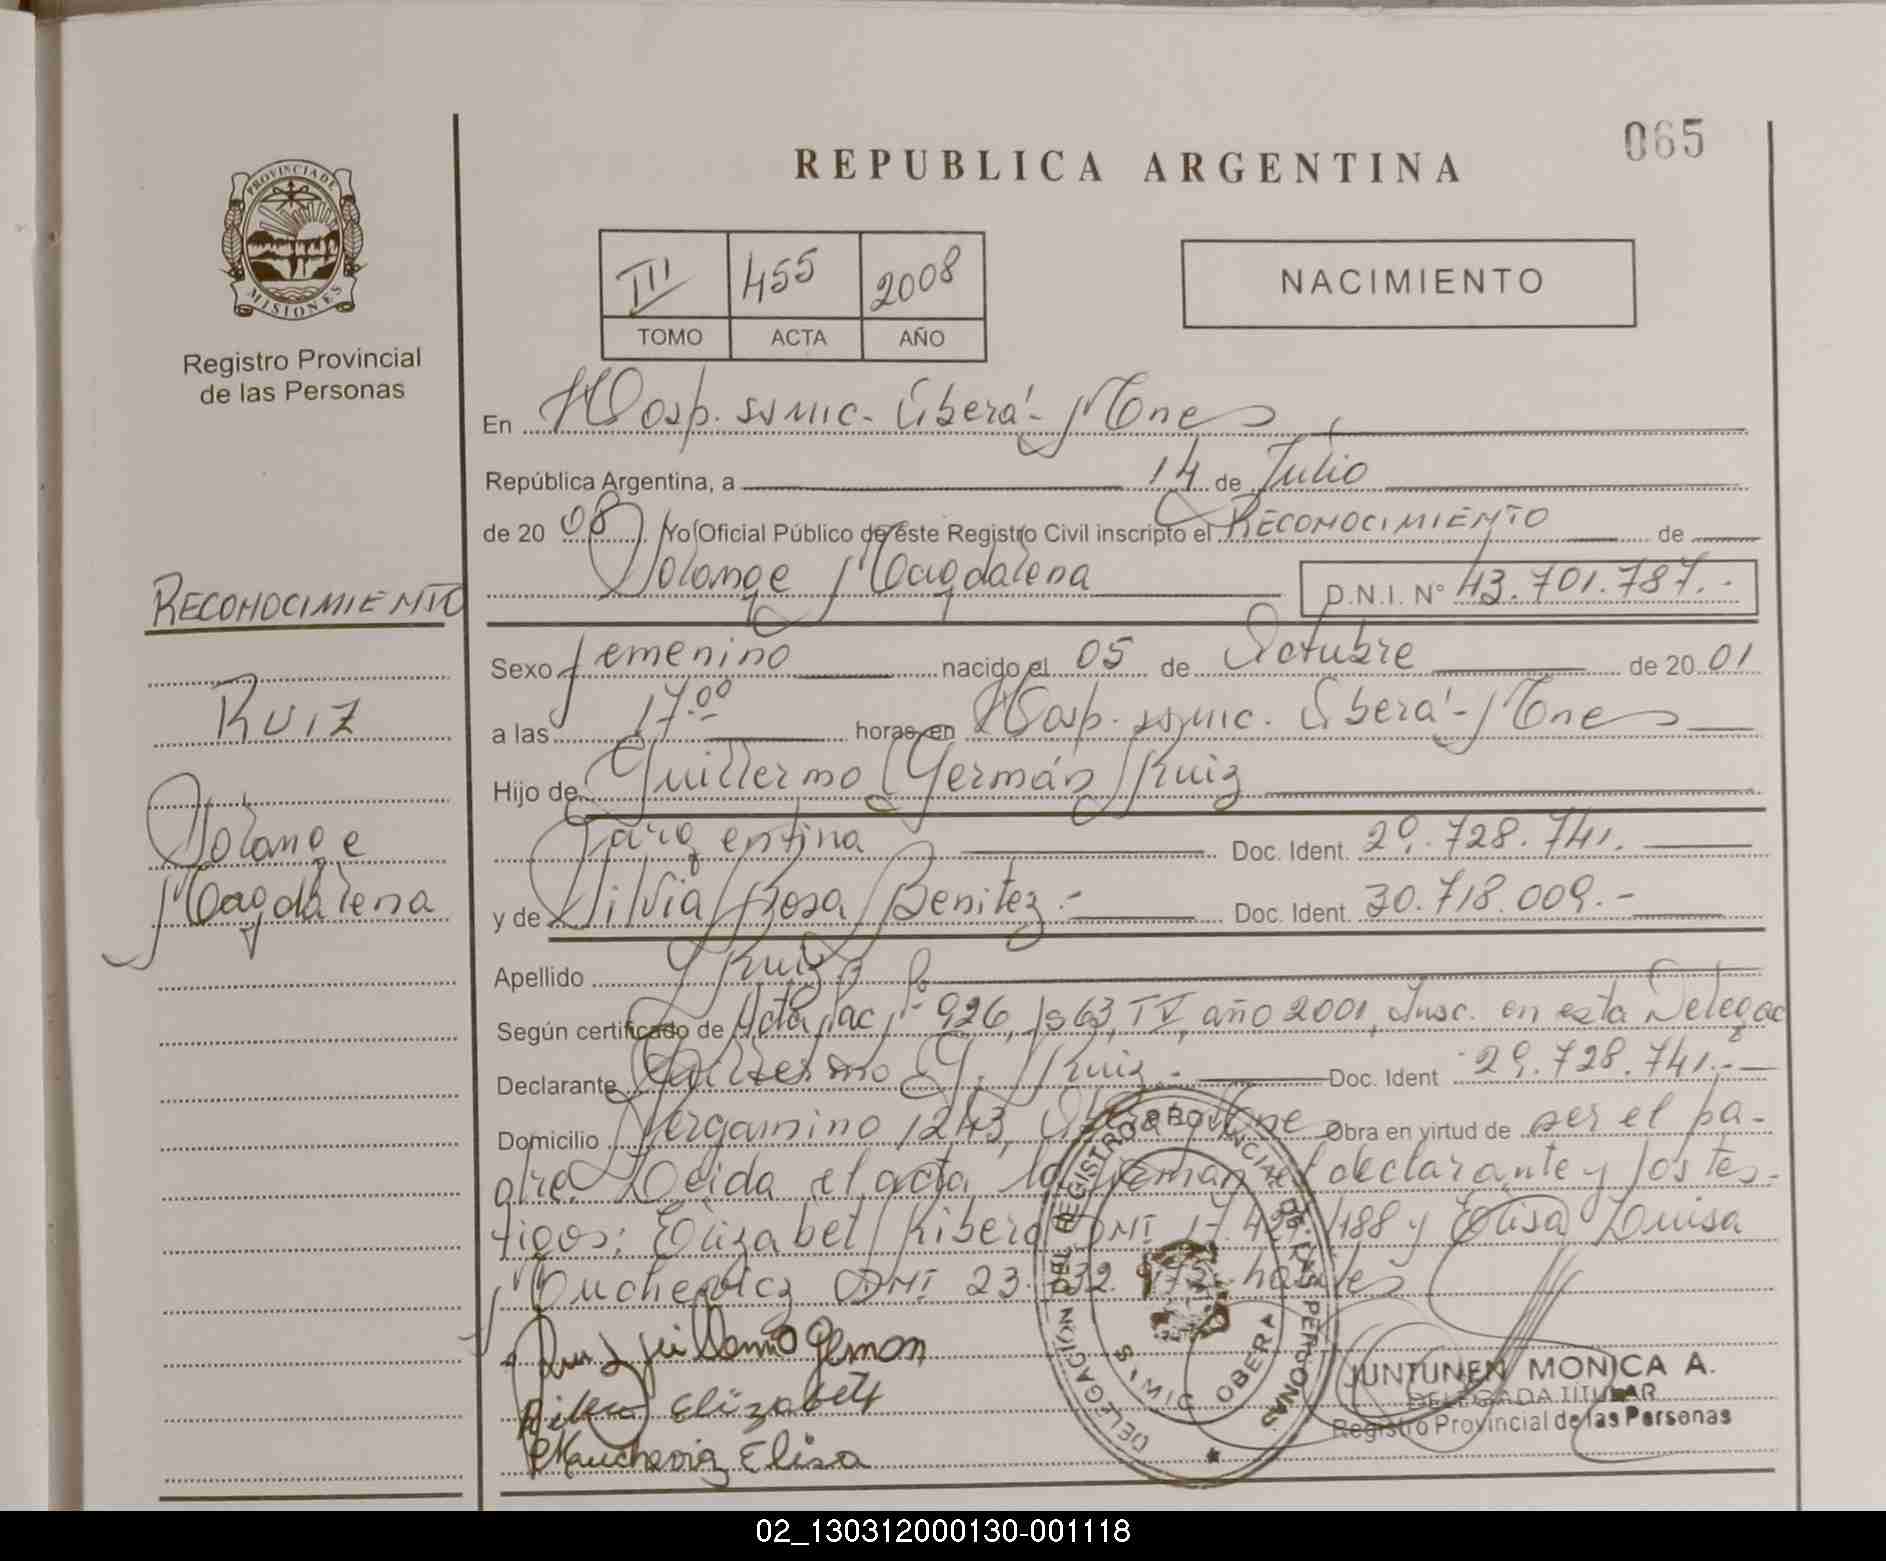 065
REPUBLICA ARGENTINA
PROVINCIA DE
MISIONES
Registro Provincial
de las Personas
III 455 2008
TOMO ACTA AÑO
NACIMIENTO
En Hosp. SAMIC- Oberá- Mnes
República Argentina, a 14 de Julio
de 20 08 Yo Oficial Público de este Registro Civil inscripto el RECONOCIMIENTO de
Solange Magdalena D.N.I. Nº 43.701.787.-
RECONOCIMIENTO
RUIZ
Solange
Magdalena
Sexo femenino nacido el 05 de Octubre de 20 01
a las 17.00 horas en Hosp. SAMIC. Oberá- Mnes
Hijo de Guillermo Germán Ruiz
argentina Doc. Ident. 29.728.741.
y de Silvia Rosa Benitez.- Doc. Ident. 30.718.009.-
Apellido Ruiz
Según certificado de Acta Nac, 926, fs 63, T V, año 2001, Insc. en esta Delegac
Declarante Guillermo G. Ruiz.- Doc. Ident 29.728.741.-
Domicilio Pergamino 1243, Oberá Mnes Obra en virtud de ser el pa-
dre. Leida el acta, la firman el declarante y los tes-
tigos: Elizabet Ribero DNI 17. 188 y Elisa Luisa
DNI 23. 32. habiles
Ruiz Guillermo German
Elizabeth
Elisa
DELEGACIÓN DEL REGISTRO PROVINCIAL DE LAS PERSONAS
OBERA
JUNTUNEN MONICA A.
DELEGADA TITULAR
Registro Provincial de las Personas
02_130312000130-001118